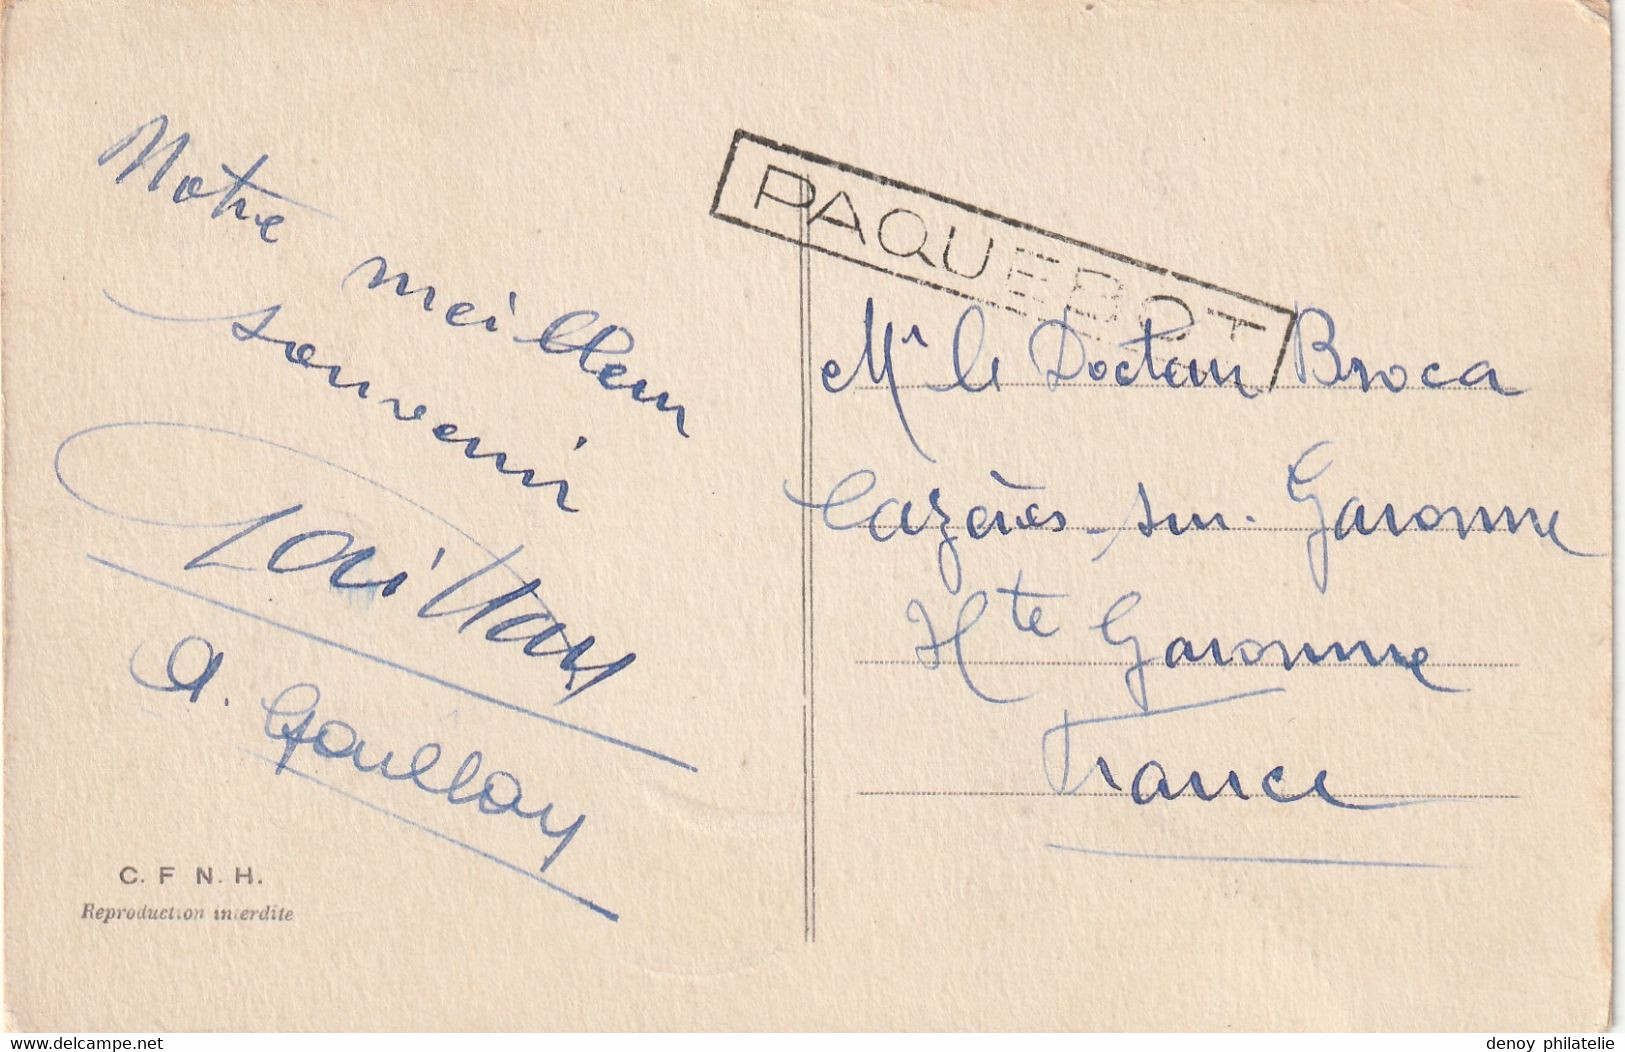 Notre
meilleur
souvenir
A.
C. F. N. H.
Reproduction interdite
PAQUEBOT
Mr le Docteur Broca
Cazères-sur-Garonne
Hte Garonne
France
www.delcampe.net
denoy philatelie